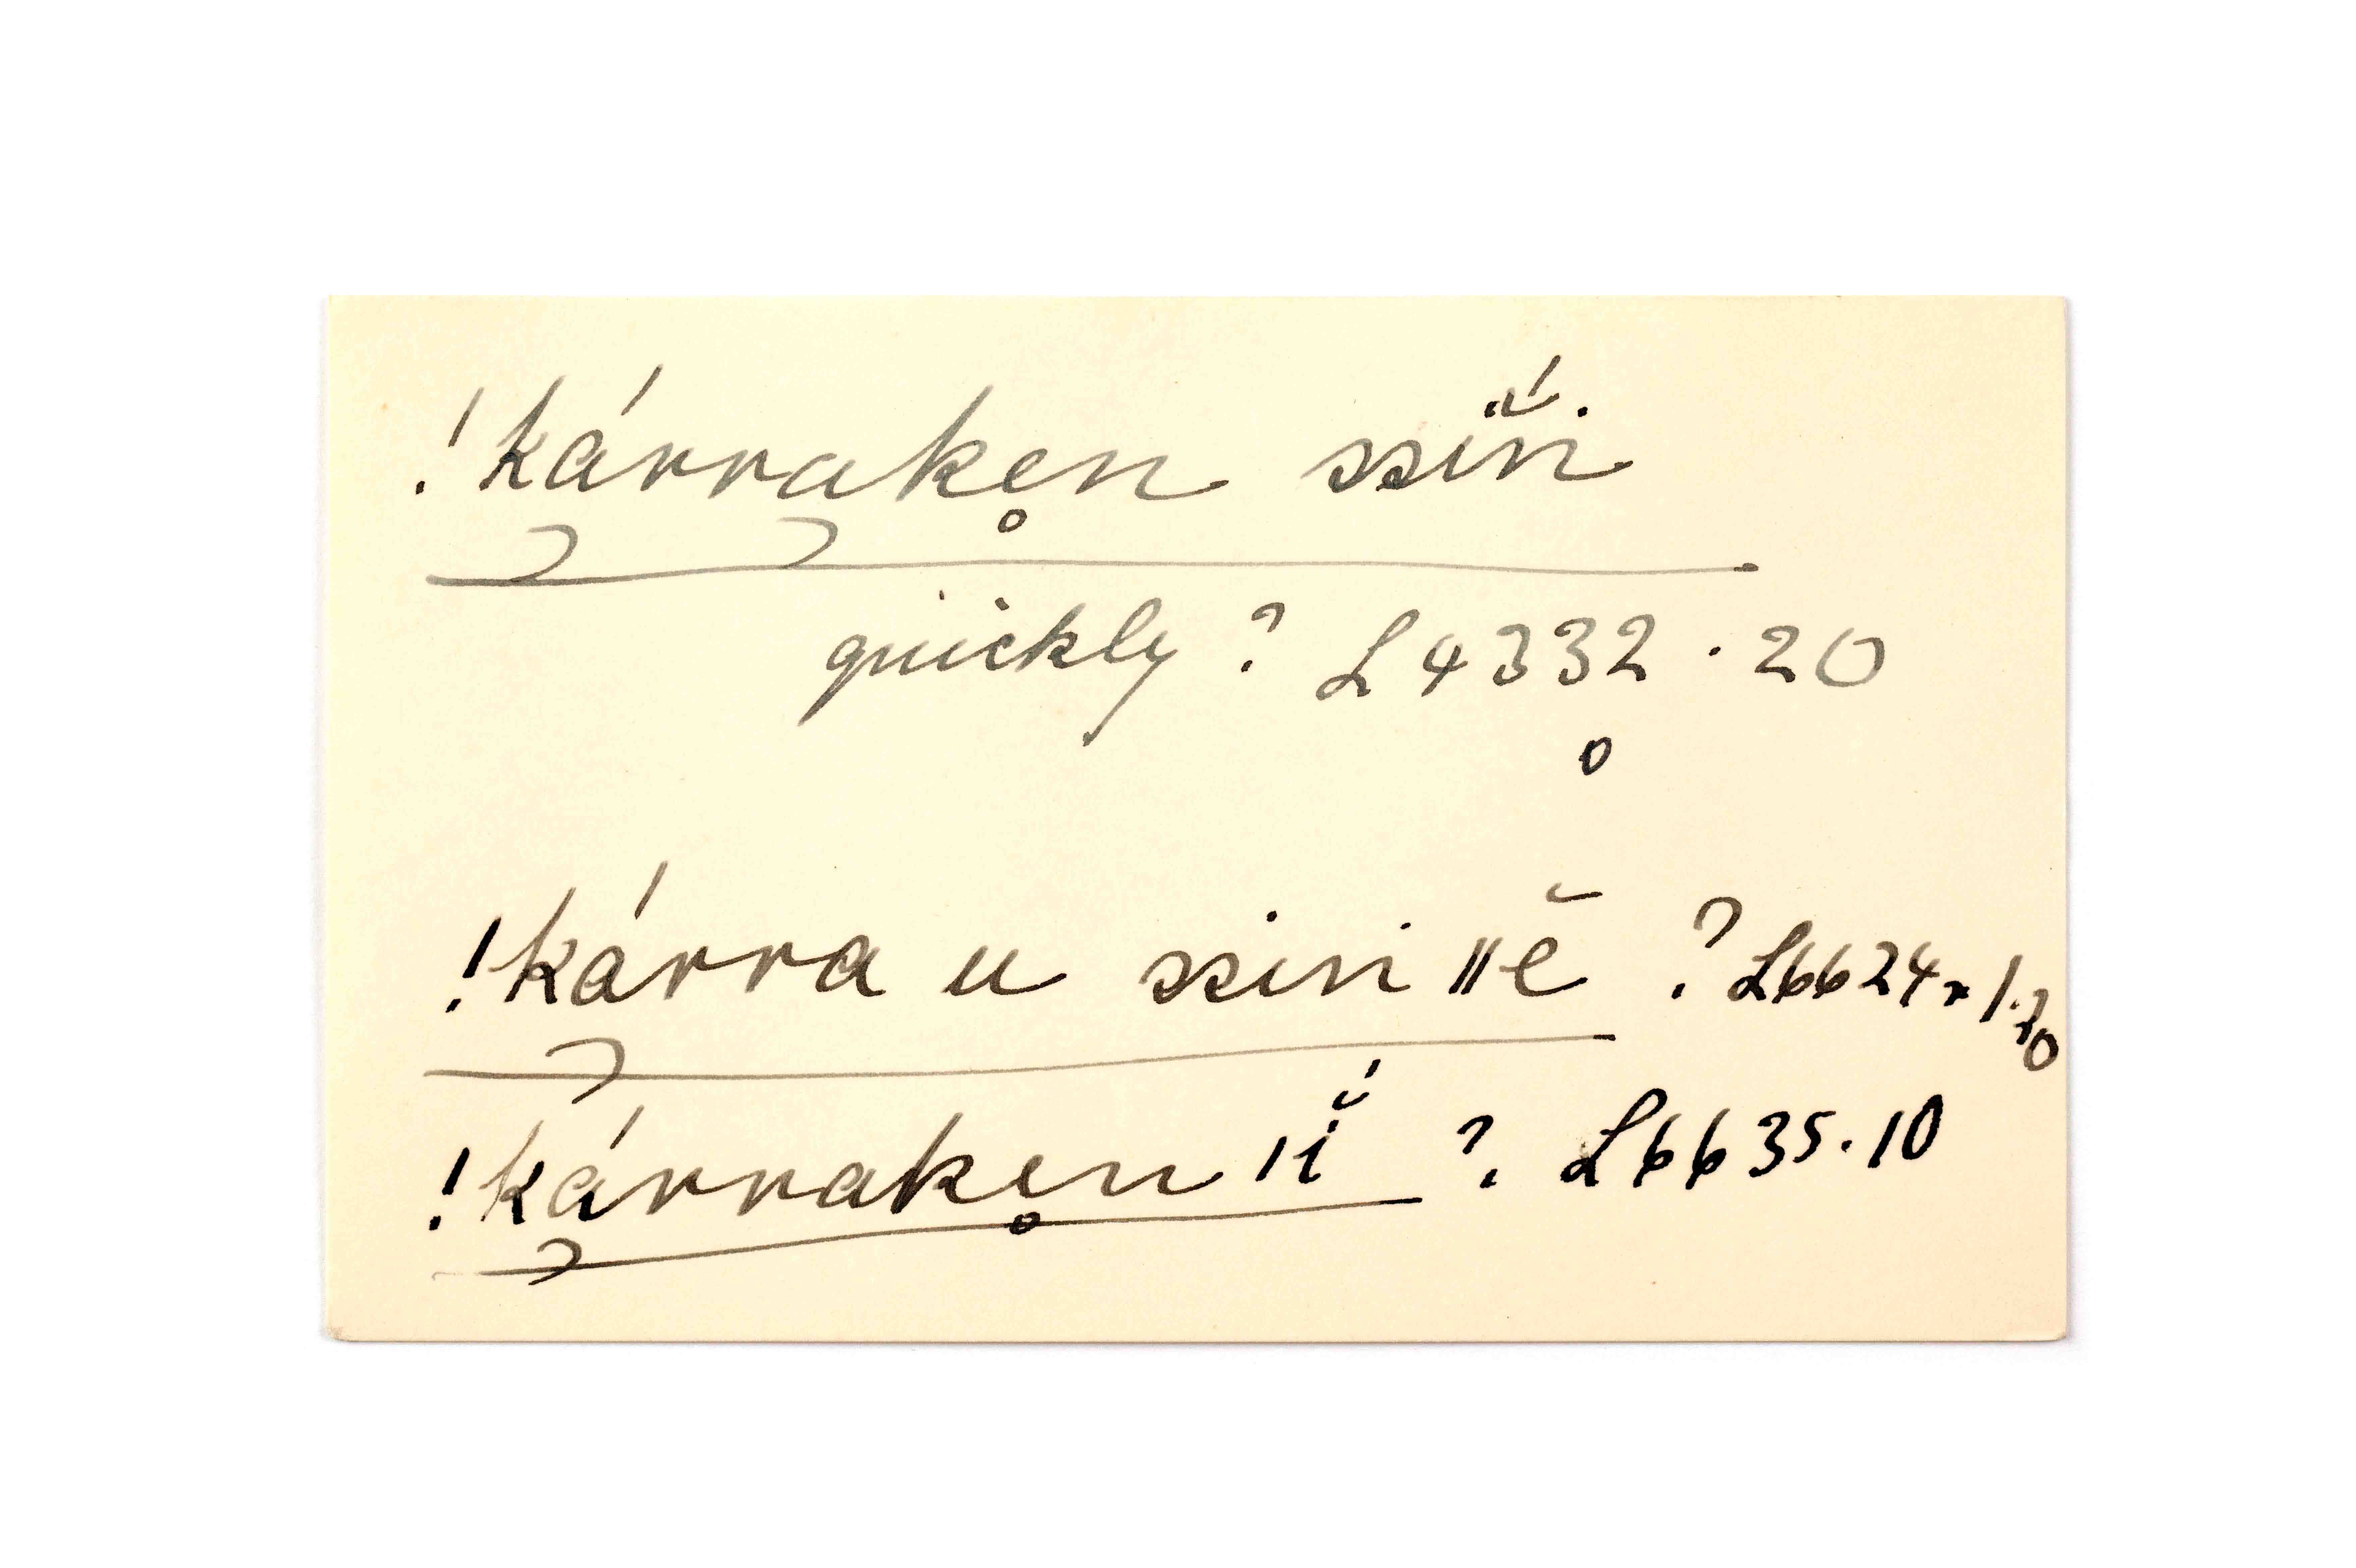 !kárrake̥n ssĭ́n
quickly? L 4332 · 20
0
!kárra u ssin ǁĕ ? L 6624
!kárrake̥n ǀĭ́ ? L 6635 · 10